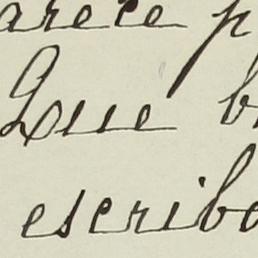 arece p
Que b
escribo